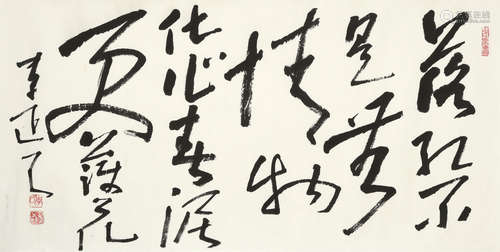 落紅不
是無
情物
化作春泥
更護花
李